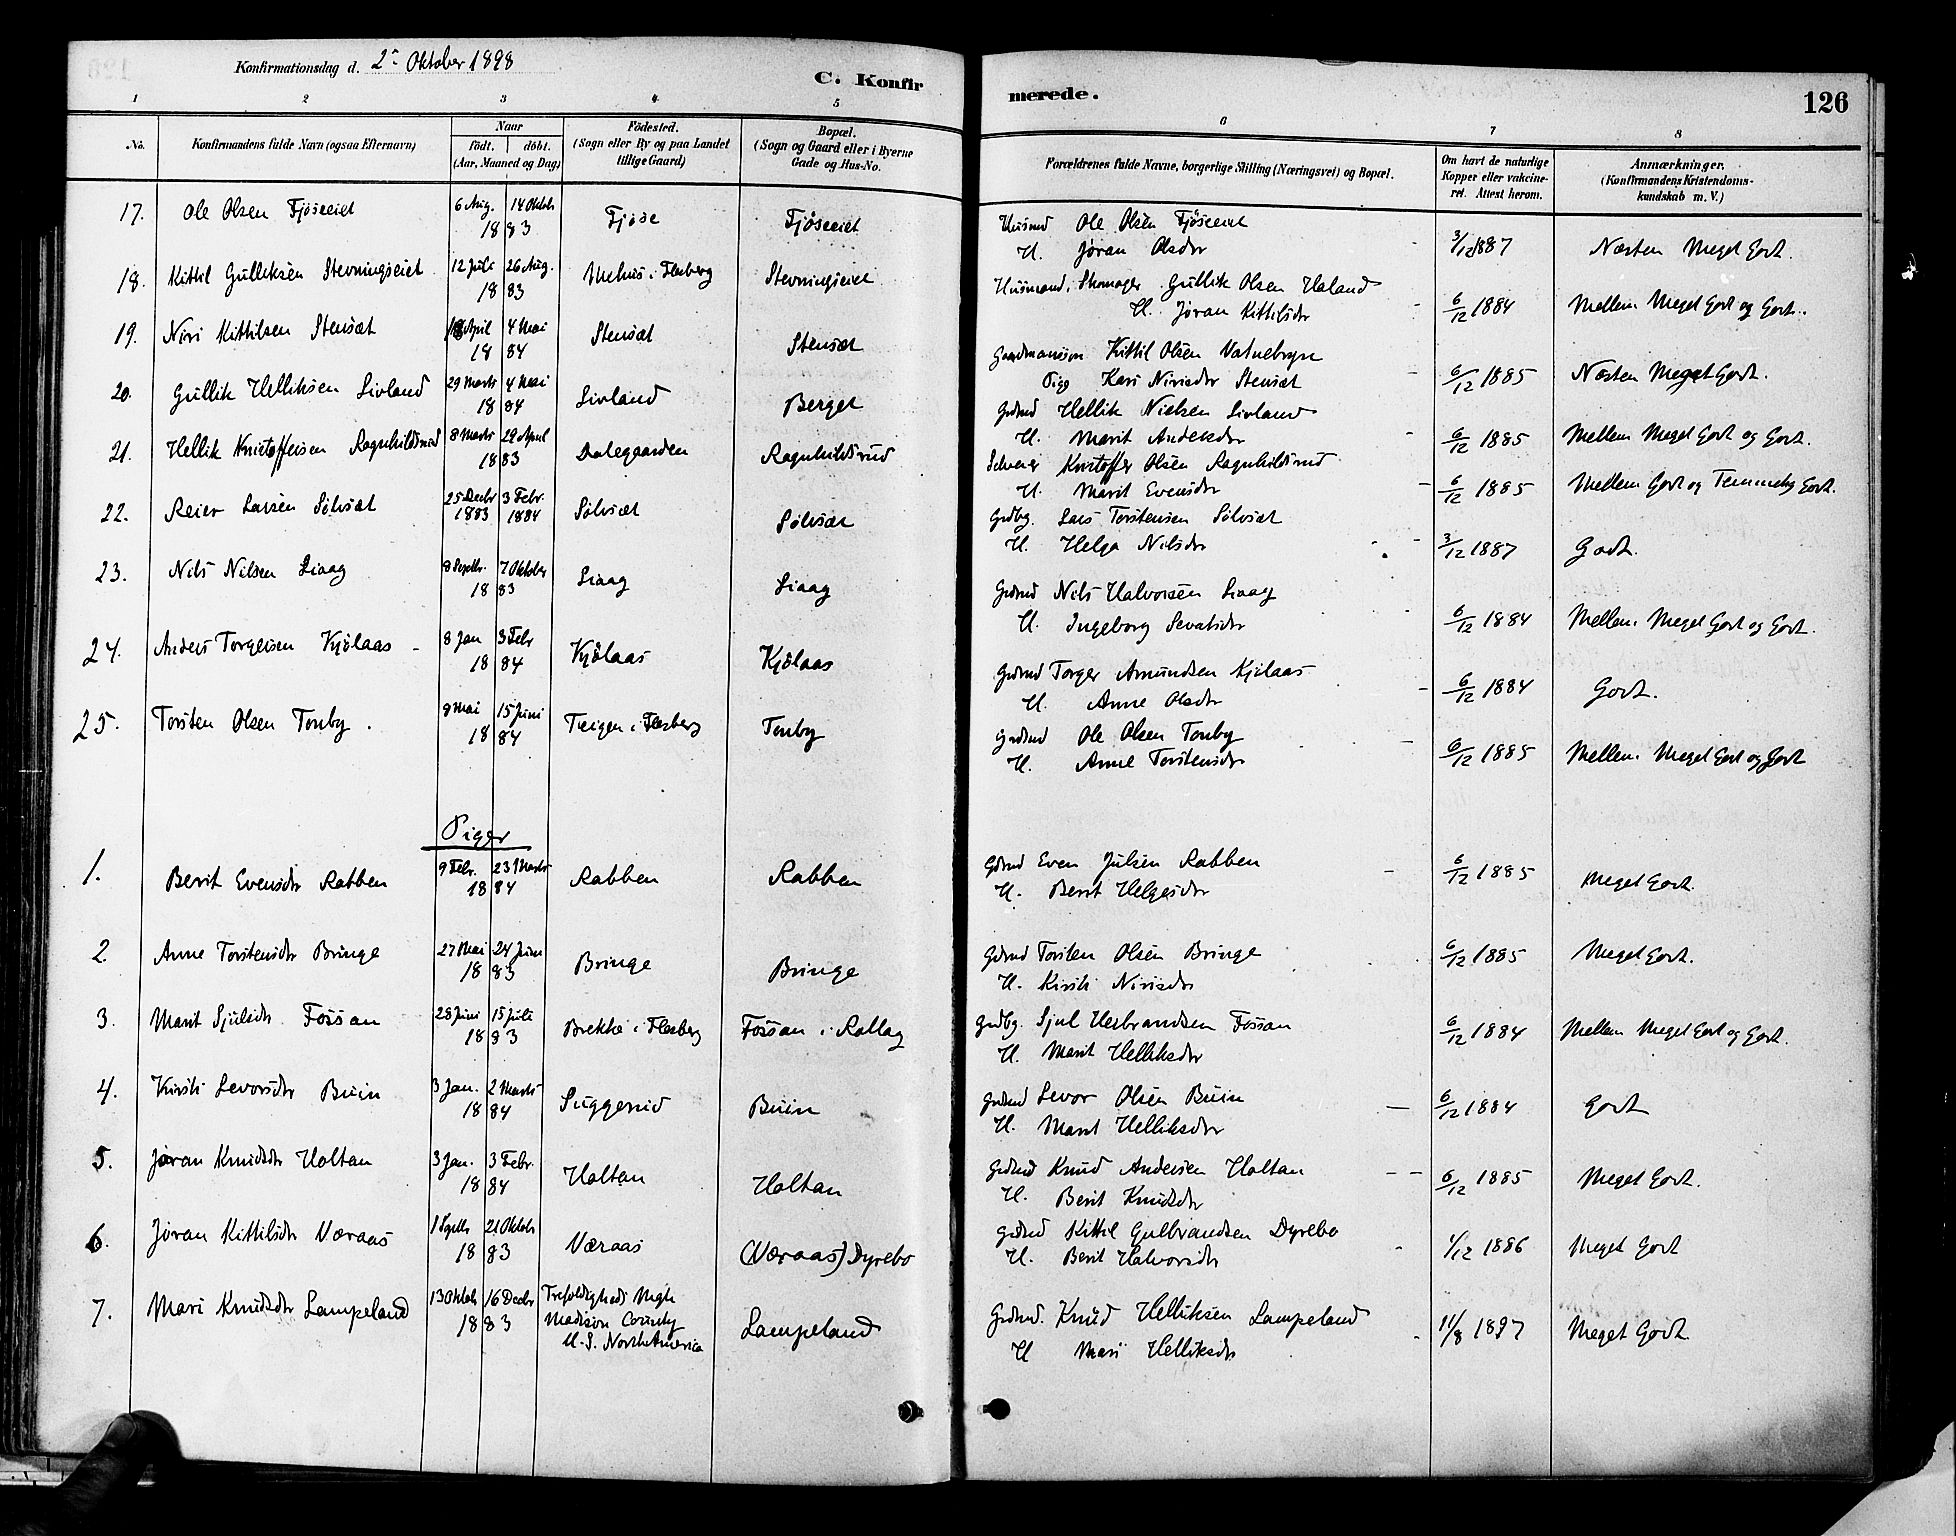 Konfirmationsdag d. 2. Oktober 1898
C. Konfir
merede.
126
1 2 3 4 5 6 7 8
No.
Konfirmandens fulde Navn (ogsaa Efternavn)
Naar
födt. döbt.
(Aar, Maaned og Dag)
Födested.
(Sogn eller By og paa Landet
tillige Gaard)
Bopæl.
(Sogn og Gaard eller i Byerne
Gade og Hus-No.
Forældrenes fulde Navne, borgerlige Stilling (Næringsvei) og Bopæl.
Om havt de naturlige
Kopper eller vakcine-
ret. Attest herom.
Anmærkninger.
(Konfirmandens Kristendoms-
kundskab m. V.)
17. Ole Olsen Fjöseeiet 6 Aug. 14 Oktob 1883 Fjöse Fjöseeiet Husmd Ole Olsen Fjöseeiet
H. Jøran Olsdr 3/12 1887 Næsten Meget Godt.
18. Kittil Gulliksen Stevningseiet 12 Juli 26 Aug. 1883 i Flesberg Stevningseiet Husmand, Skomager Gullik Olsen Haland
H. Jøran Kittilsdr 6/12 1884 Mellem Meget Godt og Godt.
19. Niri Kittilsen Stensæt April 4 Mai 1884 Stensæt Stensæt Gaardmandssøn Kittil Olsen Vatnebryn
Pige Kari Nirisdr Stensæt 6/12 1885 Næsten Meget Godt.
20. Gullik Helliksen Livland 29 Marts 4 Mai 1884 Livland Berget Grdmd Hellik Nielsen Livland
H. Marit Andersdr 6/12 1885 Mellem Meget Godt og Godt.
21. Hellik Kristoffersen Ragnhildsrud 8 Marts 29 April 1883 Dalegaarden Ragnhildsrud Selveier Kristoffer Olsen Ragnhildsrud
H. Marit Evensdr 6/12 1885 Mellem Godt og Temmelig Godt.
22. Reier Larsen Sölvsæt 25 Decbr 1883 3 Febr. 1884 Sölvsæt Sölvsæt Grdbg. Lars Torstensen Sölvsæt
H. Helga Nilsdr 3/12 1887 Godt.
23. Nils Nilsen Liaag 8 Septbr. 7 Oktober 1883 Liaag Liaag Grdmd Nils Halvorsen Liaag
H. Ingeborg Sevatsdr 6/12 1884 Mellem Meget Godt og Godt.
24. Anders Torgersen Kjölaas 8 Jan 3 Febr 1884 Kjölaas Kjölaas Grdmd Torger Amundsen Kjölaas
H. Anne Olsdr 6/12 1884 Godt.
25. Torsten Olsen Tonby. 8 Mai 15 Juni 1884 Teigen i Flesberg Tonby Grdmd Ole Olsen Tonby
H. Anne Torstensdr 6/12 1885 Mellem Meget Godt og Godt
Piger
1. Berit Evensdr Rabben 9 Febr. 23 Marts 1884 Rabben Rabben Grdmd Even Julsen Rabben
H. Berit Helgesdr 6/12 1885 Meget Godt.
2. Anne Torstensdr Bringe 27 Mai 24 Juni 1883 Bringe Bringe Grdmd Torsten Olsen Bringe
H. Kirsti Nirisdr 6/12 1885 Meget Godt.
3. Marit Sjulsdr Fossan 28 Juni 15 Juli 1883 Brekke i Flesberg Fossan i Rollag Grdbg. Sjul Herbrandsen Fossan
H. Marit Helliksdr 6/12 1884 Mellem Meget Godt og Godt.
4. Kirsti Levorsdr Buin 3 Jan. 2 Marts 1884 Suggerud Buin Grdmd Levor Olsen Buin
H. Marit Helliksdr 6/12 1884 Godt
5. Jøran Knudsdr Holtan 3 Jan. 3 Febr. 1884 Holtan Holtan Grdmd Knud Andersen Holtan
H. Berit Knudsdr 6/12 1885 Meget Godt.
6. Jøran Kittilsdr Væraas 1 Septbr 21 Oktob 1883 Væraas (Væraas) Dyrebo Grdmd Kittil Gulbrandsen Dyrebo
H. Berit Halvorsdr 1/12 1886 Meget Godt
7. Mari Knudsdr Lampeland 13 Oktob 16 Decbr 1883 Trefoldigheds Mgh
Madison County
U. S. North America Lampeland Grdmd. Knud Helliksen Lampeland
H Mari Helliksdr 11/8 1897 Meget Godt.